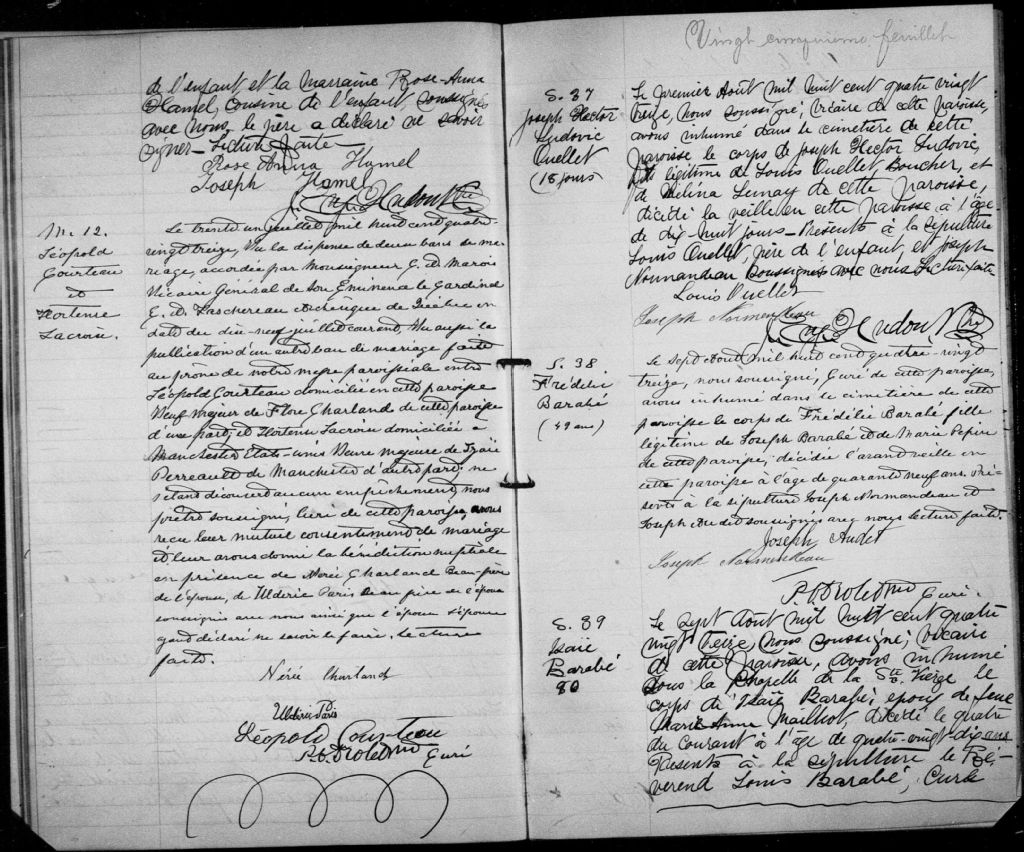 de l'enfant, et la marraine Rose-Anna
Hamel, cousine de l'enfant soussignés
avec nous, le père a déclaré ne savoir
signer - Lecture faite -
Rose Anna Hamel
Joseph Hamel
Eug. Hudon Ptre
M. 12.
Léopold
Courteau
et
Hortense
Lacroix.
Le trente un juillet mil huit cent quatre
vingt treize, Vu la dispense de deux bans de ma-
riage, accordée par Monseigneur C. A. Marois
Vicaire Général de Son Eminence le Cardinal
E. A. Taschereau Archevêque de Québec en
date du dix-neuf juillet courant, Vu aussi la
publication d'un autre ban de mariage faite
au prône de notre messe paroissiale entre
Léopold Courteau domicilié en cette paroisse
Veuf majeur de Flore Charland de cette paroisse
d'une part; et Hortense Lacroix domiciliée à
Manchester Etats-unis Veuve majeure de Isaïe
Perreault de Manchester d'autre part; ne
s'étant découvert aucun empêchement, nous
prêtre soussigné, Curé de cette paroisse, avons
reçu leur mutuel consentement de mariage
et leur avons donné la bénédiction nuptiale
en présence de Nérée Charland Beau-frère
de l'épouse, de Ulderic Paris Beau père de l'époux
soussignés avec nous ainsi que l'époux l'épouse
ayant déclaré ne savoir le faire. Lecture
faite.
Nérée Charland
Ulderic Paris
Léopold Courteau
P. O. Drolet Ptre Curé
Vingt cinquième feuillet
S. 37
Joseph Hector
Ludovic
Ouellet
(18 jours)
Le premier Août mil huit cent quatre vingt
treize, nous soussigné, vicaire de cette paroisse,
avons inhumé dans le cimetière de cette
paroisse le corps de Joseph Hector Ludovic,
fils légitime de Louis Ouellet, Boucher, et
de Délina Lemay de cette paroisse,
décédé la veille en cette paroisse à l'âge
de dix-huit jours - Présents à la sépulture
Louis Ouellet, père de l'enfant, et Joseph
Normandeau soussignés avec nous Lecture faite
Louis Ouellet
Joseph Normandeau
Eug. Hudon, Ptre
S. 38.
Frédélie
Barabé
(49 ans)
Le sept Août mil huit cent quatre-vingt
treize, nous soussigné, Curé de cette paroisse,
avons inhumé dans le cimetière de cette
paroisse le corps de Frédélie Barabé fille
légitime de Joseph Barabé et de Marie Pepin
de cette paroisse, décédée l'avant veille en
cette paroisse à l'âge de quarante neuf ans. Pré-
sents à la sépulture Joseph Normandeau et
Joseph Audet soussignés avec nous lecture faite.
Joseph Audet
Joseph Normandeau
P. O. Drolet Ptre Curé.
S. 39
Isaïe
Barabé
80
Le sept Août mil huit cent quatre
vingt treize, nous soussigné, vicaire
de cette paroisse, avons inhumé
sous la chapelle de la Ste Vierge le
corps d'Isaïe Barabé, époux de feue
Marie Anne Mailhot, décédé le quatre
du courant à l'âge de quatre-vingt-dix ans
Présents à la sépulture le Ré-
vérend Louis Barabé, Curé